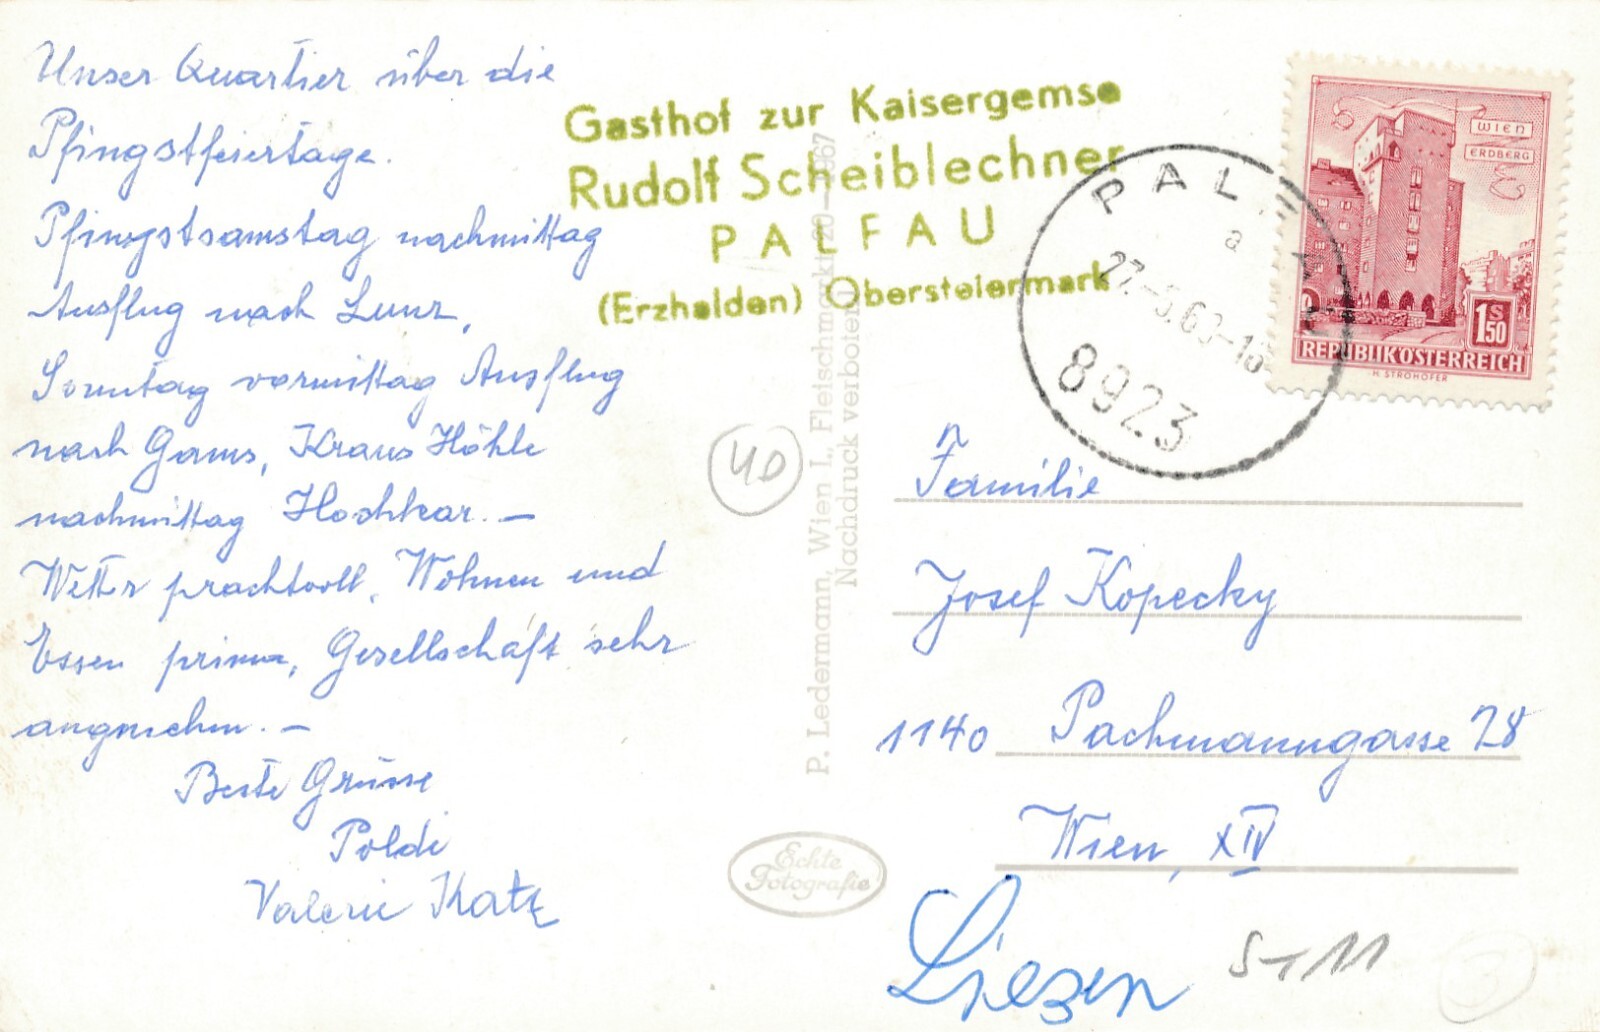 Unser Quartier über die
Pfingstfeiertage.
Pfingstsamstag nachmittag
Ausflug nach Lunz,
Sonntag vormittag Ausflug
nach Gams, Kraus Höhle
nachmittag Hochkar. —
Wetter prachtvoll, Wohnen und
Essen prima, Gesellschaft sehr
angenehm. —
Beste Grüsse
Poldi
Valerie Katz
Gasthof zur Kaisergemse
Rudolf Scheiblechner
PALFAU
(Erzhalden) Obersteiermark
P. Ledermann, Wien I., Fleischmarkt 20 — 1967
Nachdruck verboten
40
Echte
Fotografie
PALFAU
a
27.-5.69-18
8923
WIEN
ERDBERG
1 S 50
REPUBLIK ÖSTERREICH
H. STROHOFER
Familie
Josef Kopecky
1140 Pachmanngasse 28
Wien, XIV
Liezen
ST 11
3